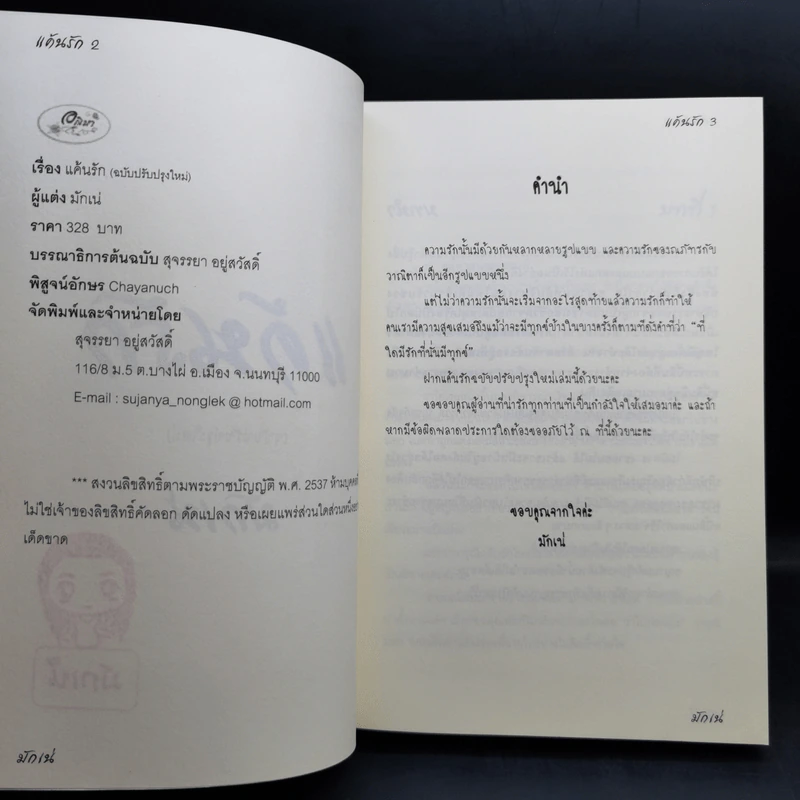 แค้นรัก 2
เรื่อง แค้นรัก (ฉบับปรับปรุงใหม่)
ผู้แต่ง มักเน่
ราคา 328 บาท
บรรณาธิการต้นฉบับ สุจรรยา อยู่สวัสดิ์
พิสูจน์อักษร Chayanuch
จัดพิมพ์และจำหน่ายโดย
สุจรรยา อยู่สวัสดิ์
116/8 ม.5 ต.บางไผ่ อ.เมือง จ.นนทบุรี 11000
E-mail : sujanya_nonglek @ hotmail.com
*** สงวนลิขสิทธิ์ตามพระราชบัญญัติ พ.ศ. 2537 ห้ามบุคคล
ไม่ใช่เจ้าของลิขสิทธิ์คัดลอก ดัดแปลง หรือเผยแพร่ส่วนใดส่วนหนึ่ง
เด็ดขาด
มักเน่
มักเน่
แค้นรัก 3
คำนำ
ความรักนั้นมีด้วยกันหลากหลายรูปแบบ และความรักของณภัทรกับ
วาณิตาก็เป็นอีกรูปแบบหนึ่ง
แต่ไม่ว่าความรักนั้นจะเริ่มจากอะไรสุดท้ายแล้วความรักก็ทำให้
คนเรามีความสุขเสมอถึงแม้ว่าจะมีทุกข์บ้างในบางครั้งก็ตามทีดั่งคำที่ว่า “ที่
ใดมีรักที่นั่นมีทุกข์”
ฝากแค้นรักฉบับปรับปรุงใหม่เล่มนี้ด้วยนะคะ
ขอขอบคุณผู้อ่านที่น่ารักทุกท่านที่เป็นกำลังใจให้เสมอมาค่ะ และถ้า
หากมีข้อผิดพลาดประการใดต้องขออภัยไว้ ณ ที่นี้ด้วยนะคะ
ขอบคุณจากใจค่ะ
มักเน่
มักเน่